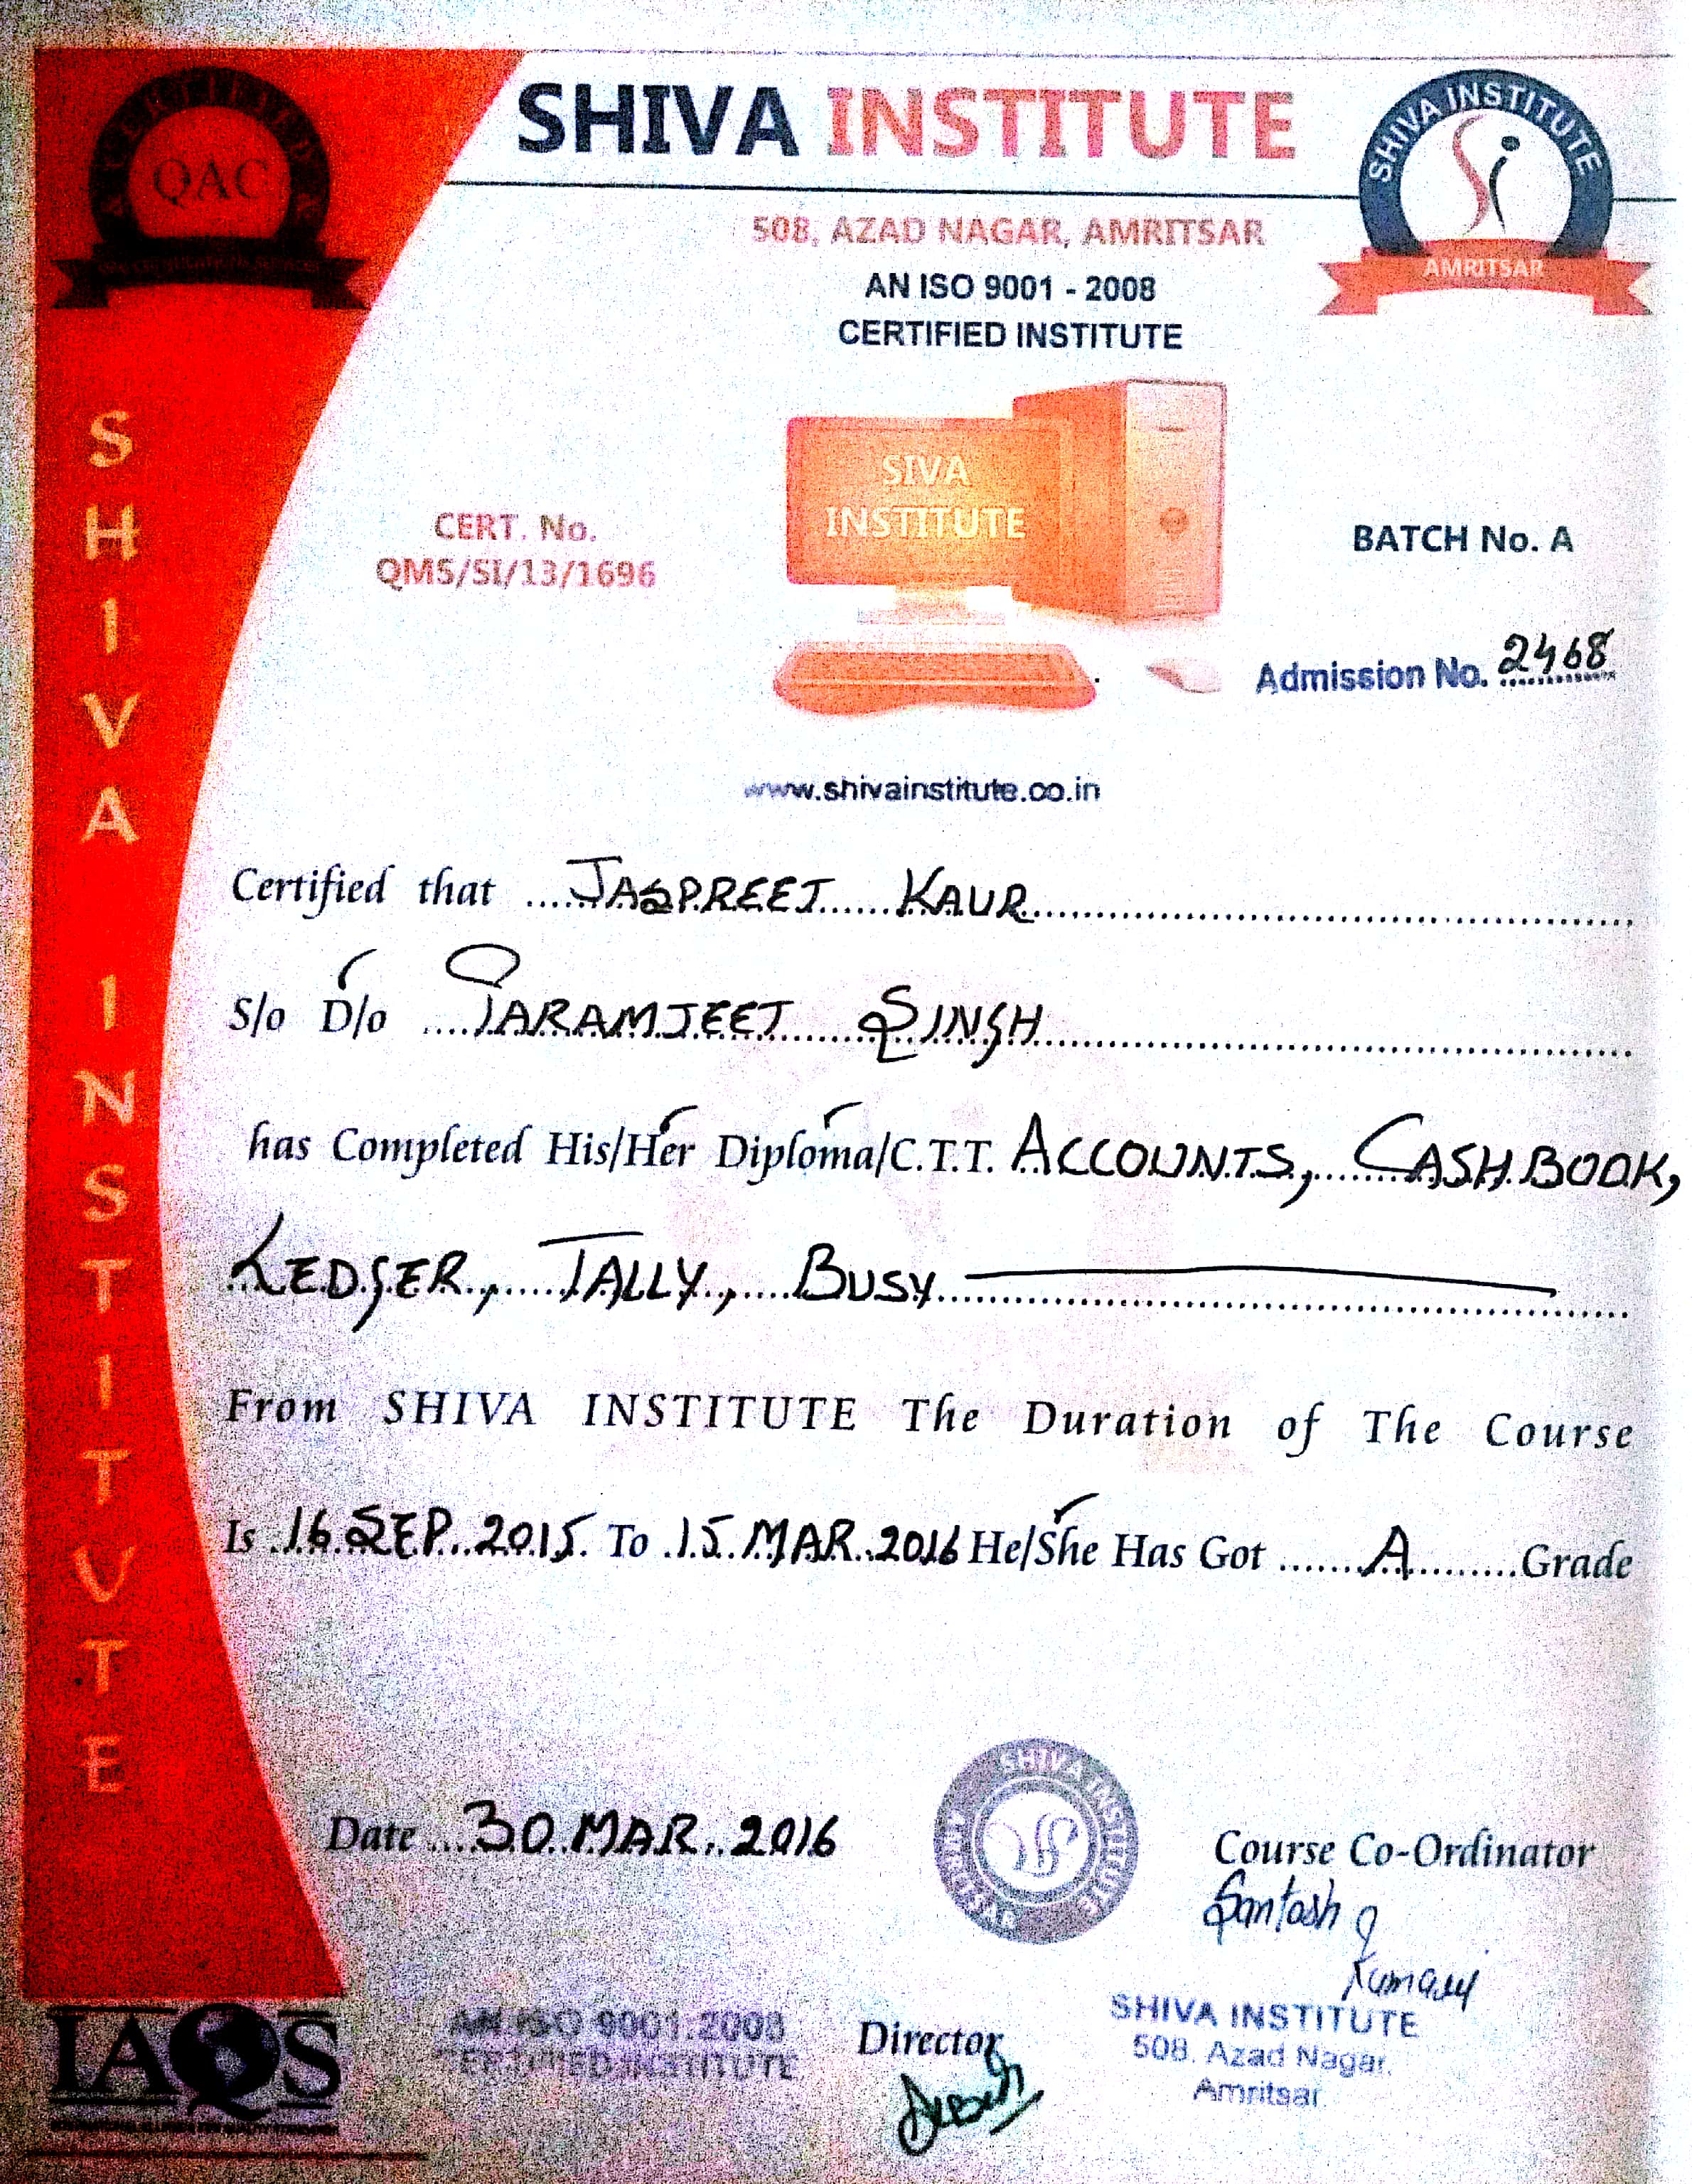 SHIVA INSTITUTE
QAC
SHIVA INSTITUTE
AMRITSAR
508, AZAD NAGAR, AMRITSAR
AN ISO 9001 - 2008
CERTIFIED INSTITUTE
SHIVA INSTITUTE
SIVA
INSTITUTE
CERT. No.
QMS/SI/13/1696
BATCH No. A
Admission No. 2468
www.shivainstitute.co.in
Certified that JASPREET KAUR
S/o D/o PARAMJEET SINGH
has Completed His/Her Diploma/C.T.T. ACCOUNTS, CASH BOOK,
LEDGER, TALLY, BUSY
From SHIVA INSTITUTE The Duration of The Course
Is 16 SEP. 2015 To 15 MAR. 2016 He/She Has Got A Grade
SHIVA INSTITUTE AMRITSAR
Date 30 MAR. 2016
Course Co-Ordinator
Santosh
Kumari
SHIVA INSTITUTE
508, Azad Nagar,
Amritsar
Director
AN ISO 9001:2008
CERTIFIED INSTITUTE
IAQS